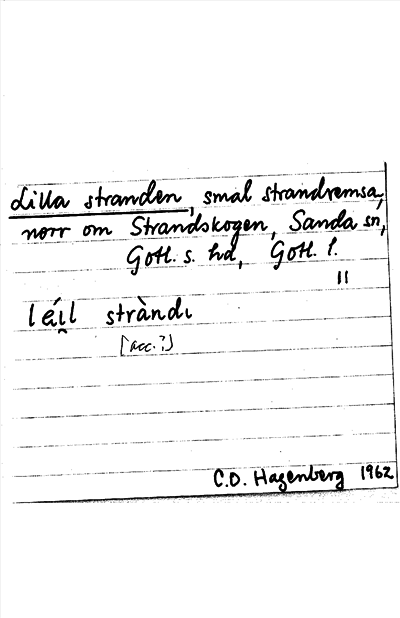 Lilla stranden, smal strandremsa,
norr om Strandskogen, Sanda sn,
Gotl. s. hd, Gotl. l.
"
léi̯l stràndı
[acc.?]
C.O. Hagenberg 1962